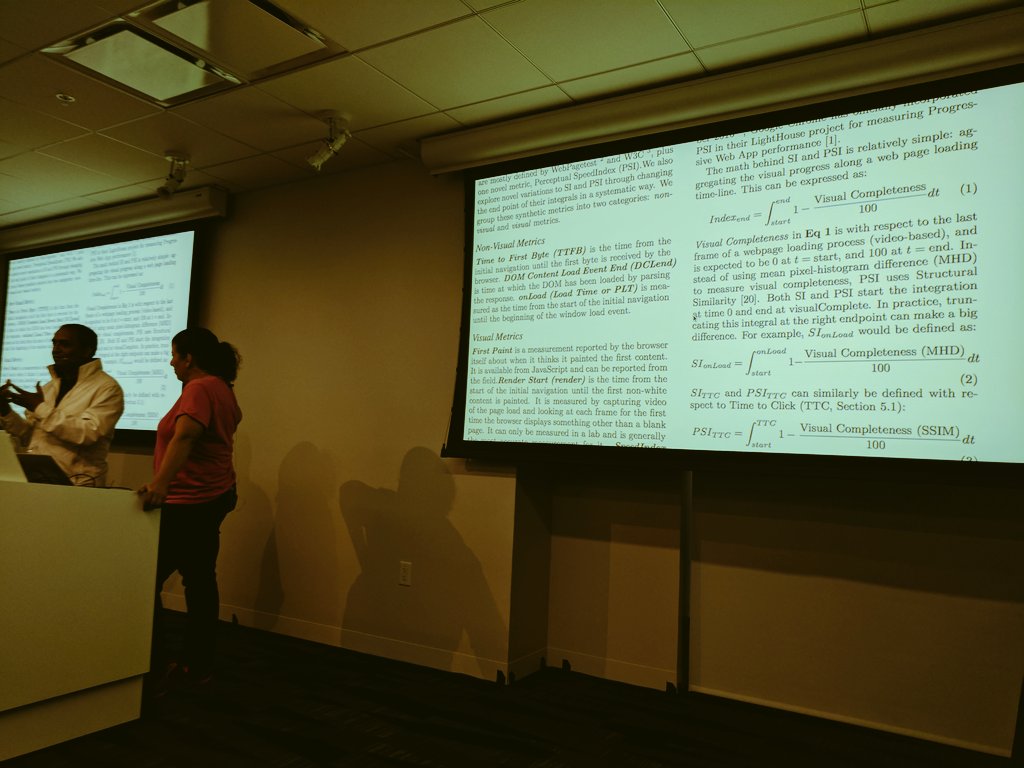 are mostly defined by WebPagetest 2 and W3C 3, plus
one novel metric, Perceptual SpeedIndex (PSI).We also
explore novel variations to SI and PSI through changing
the end point of their integrals in a systematic way. We
group these synthetic metrics into two categories: non-
visual and visual metrics.
Non-Visual Metrics
Time to First Byte (TTFB) is the time from the
initial navigation until the first byte is received by the
browser. DOM Content Load Event End (DCLend)
is time at which the DOM has been loaded by parsing
the response. onLoad (Load Time or PLT) is mea-
sured as the time from the start of the initial navigation
until the beginning of the window load event.
Visual Metrics
First Paint is a measurement reported by the browser
itself about when it thinks it painted the first content.
It is available from JavaScript and can be reported from
the field.Render Start (render) is the time from the
start of the initial navigation until the first non-white
content is painted. It is measured by capturing video
of the page load and looking at each frame for the first
time the browser displays something other than a blank
page. It can only be measured in a lab and is generally
SpeedIndex
PSI in their LightHouse project for measuring Progres-
sive Web App performance [1].
The math behind SI and PSI is relatively simple: ag-
gregating the visual progress along a web page loading
time-line. This can be expressed as:
Index_end = ∫_start^end 1 − Visual Completeness/100 dt (1)
Visual Completeness in Eq 1 is with respect to the last
frame of a webpage loading process (video-based), and
is expected to be 0 at t = start, and 100 at t = end. In-
stead of using mean pixel-histogram difference (MHD)
to measure visual completeness, PSI uses Structural
Similarity [20]. Both SI and PSI start the integration
at time 0 and end at visualComplete. In practice, trun-
cating this integral at the right endpoint can make a big
difference. For example, SI_onLoad would be defined as:
SI_onLoad = ∫_start^onLoad 1 − Visual Completeness (MHD)/100 dt
(2)
SI_TTC and PSI_TTC can similarly be defined with re-
spect to Time to Click (TTC, Section 5.1):
PSI_TTC = ∫_start^TTC 1 − Visual Completeness (SSIM)/100 dt